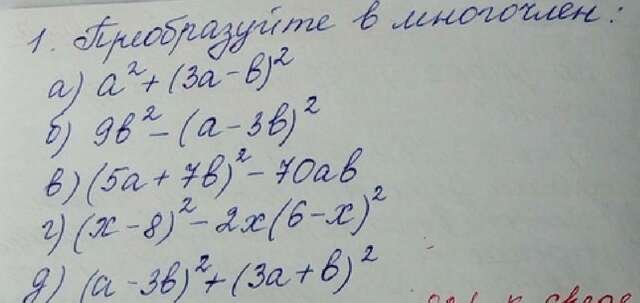 1. Преобразуйте в многочлен:
а) a² + (3a - b)²
б) 9b² - (a - 3b)²
в) (5a + 7b)² - 70ab
г) (x - 8)² - 2x(6 - x)²
д) (a - 3b)² + (3a + b)²